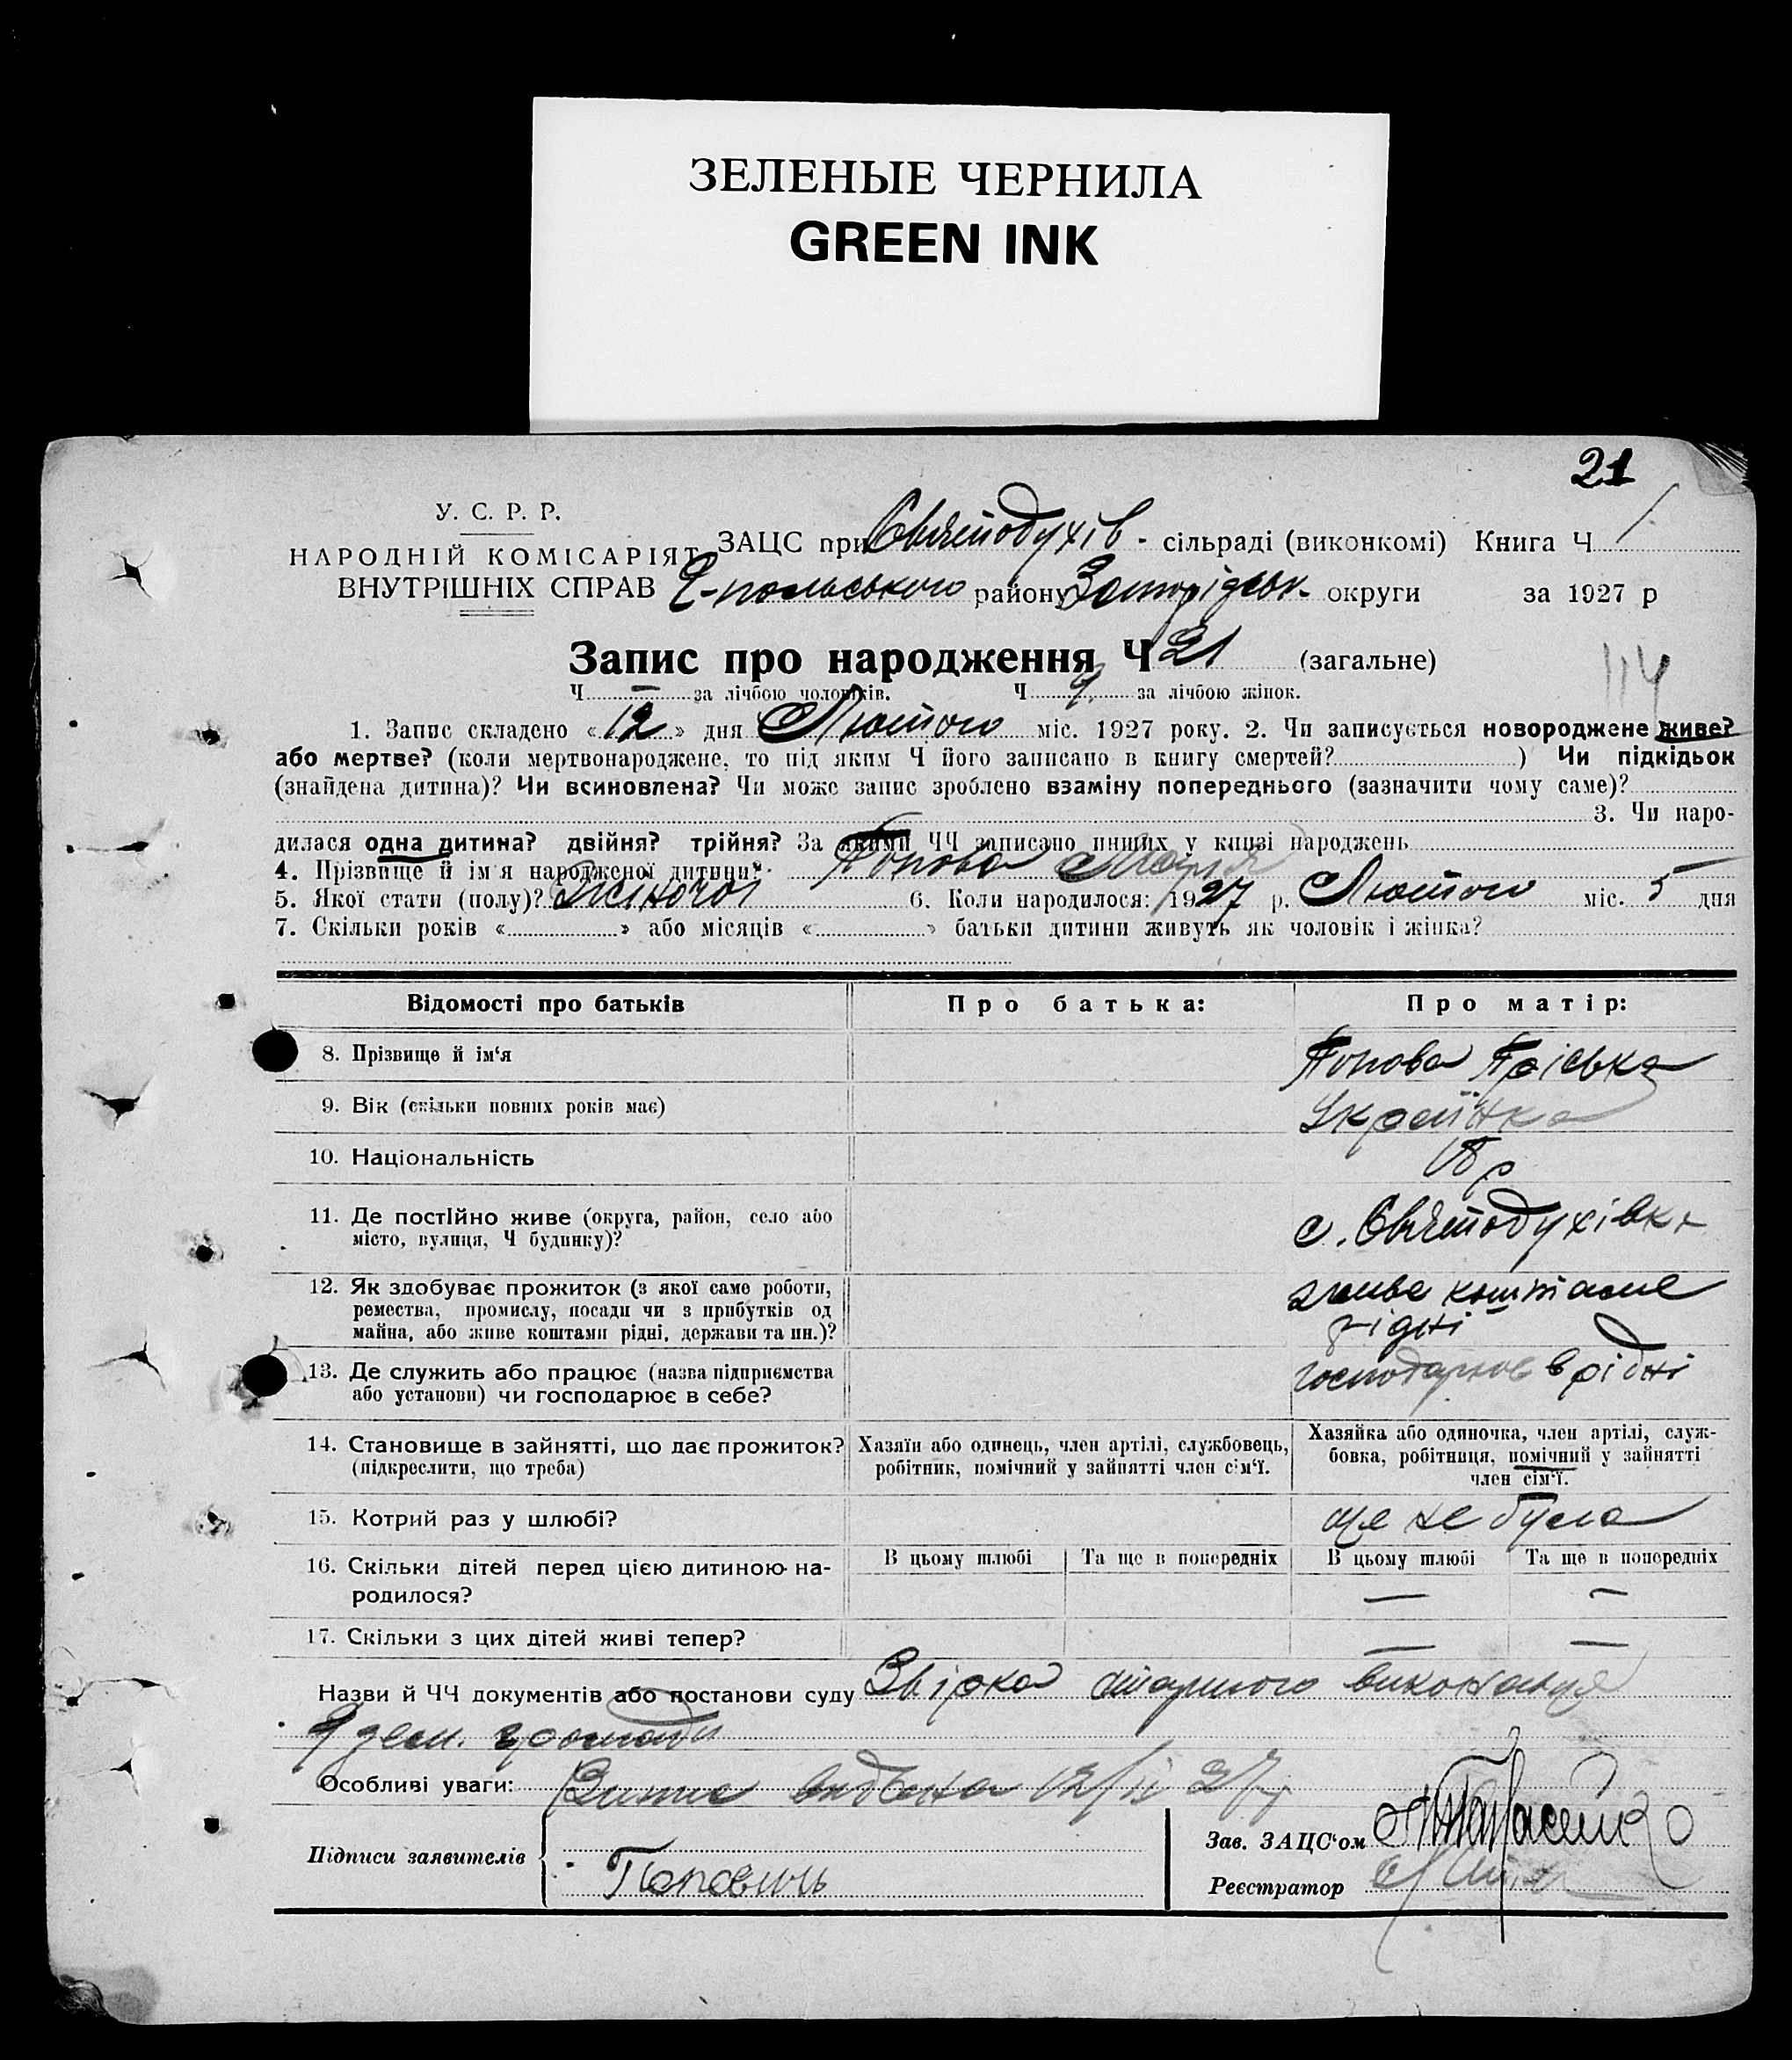 ЗЕЛЕНЫЕ ЧЕРНИЛА
GREEN INK
21
У. С. Р. Р.
НАРОДНІЙ КОМІСАРІЯТ
ВНУТРІШНІХ СПРАВ
ЗАЦС при Святодухів - сільраді (виконкомі) Книга Ч 1
-польського району Запоріжськ. округи за 1927 р
Запис про народження Ч 21 (загальне)
114
Ч — за лічбою чоловіків. Ч 9 за лічбою жінок.
1. Запис складено «12» дня Лютого міс. 1927 року. 2. Чи записується новороджене живе?
або мертве? (коли мертвонароджене, то під яким Ч його записано в книгу смертей? ) Чи підкідьок
(знайдена дитина)? Чи всиновлена? Чи може запис зроблено взаміну попереднього (зазначити чому саме)?
3. Чи наро-
дилася одна дитина? двійня? трійня? За якими ЧЧ записано инших у книзі народжень
4. Прізвище й ім'я народженої дитини? Попова Марія
5. Якої стати (полу)? Жіночої 6. Коли народилося: 1927 р. Лютого міс. 5 дня
7. Скільки років « » або місяців « » батьки дитини живуть як чоловік і жінка?
Відомості про батьків Про батька: Про матір:
8. Прізвище й ім'я Попова Пріська
9. Вік (скільки повних років має) Українка
10. Національність 18 р
11. Де постійно живе (округа, район, село або
місто, вулиця, Ч будинку)? с. Святодухівка
12. Як здобуває прожиток (з якої саме роботи,
ремества, промислу, посади чи з прибутків од
майна, або живе коштами рідні, держави та ин.)? живе коштами
рідні
13. Де служить або працює (назва підприємства
або установи) чи господарює в себе? господарює в рідні
14. Становище в зайнятті, що дає прожиток?
(підкреслити, що треба)
Хазяїн або одинець, член артілі, службовець,
робітник, помічний у зайнятті член сім'ї.
Хазяйка або одиночка, член артілі, служ-
бовка, робітниця, помічний у зайнятті
член сім'ї.
15. Котрий раз у шлюбі? ще не була
16. Скільки дітей перед цією дитиною на-
родилося?
В цьому шлюбі Та ще в попередніх В цьому шлюбі Та ще в попередніх
— —
17. Скільки з цих дітей живі тепер? — —
Назви й ЧЧ документів або постанови суду Звірка старшого виконавця
громади
Особливі уваги: видана 12/II 27р
Підписи заявителів
Попович
Зав. ЗАЦС'ом
Реєстратор